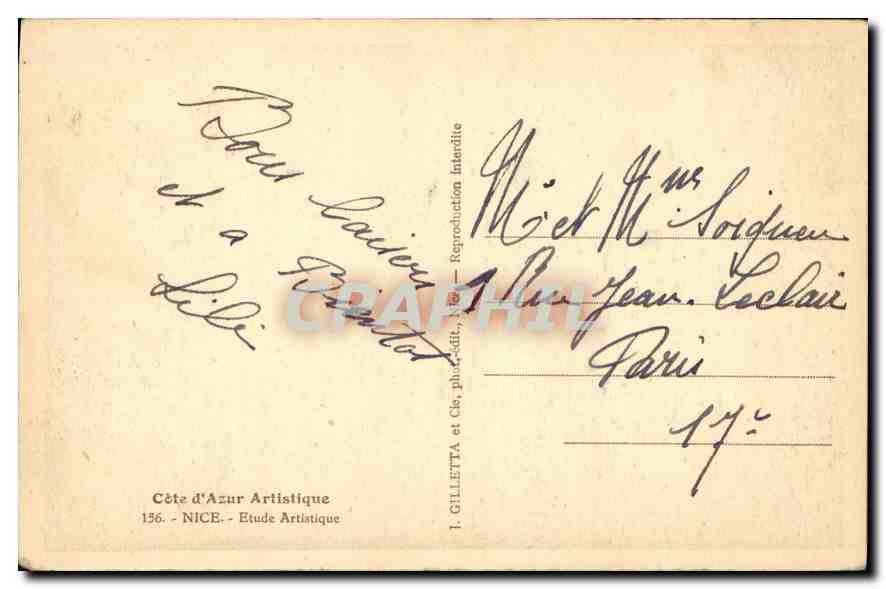 Bons baisers
et a Bientot
Lili
Côte d'Azur Artistique
156. - NICE. - Etude Artistique
J. GILLETTA et Cie, phot.-édit., Nice — Reproduction interdite
CRAPHIL
Mr et Mme Soigneu
1 Rue Jean Leclair
Paris
17e